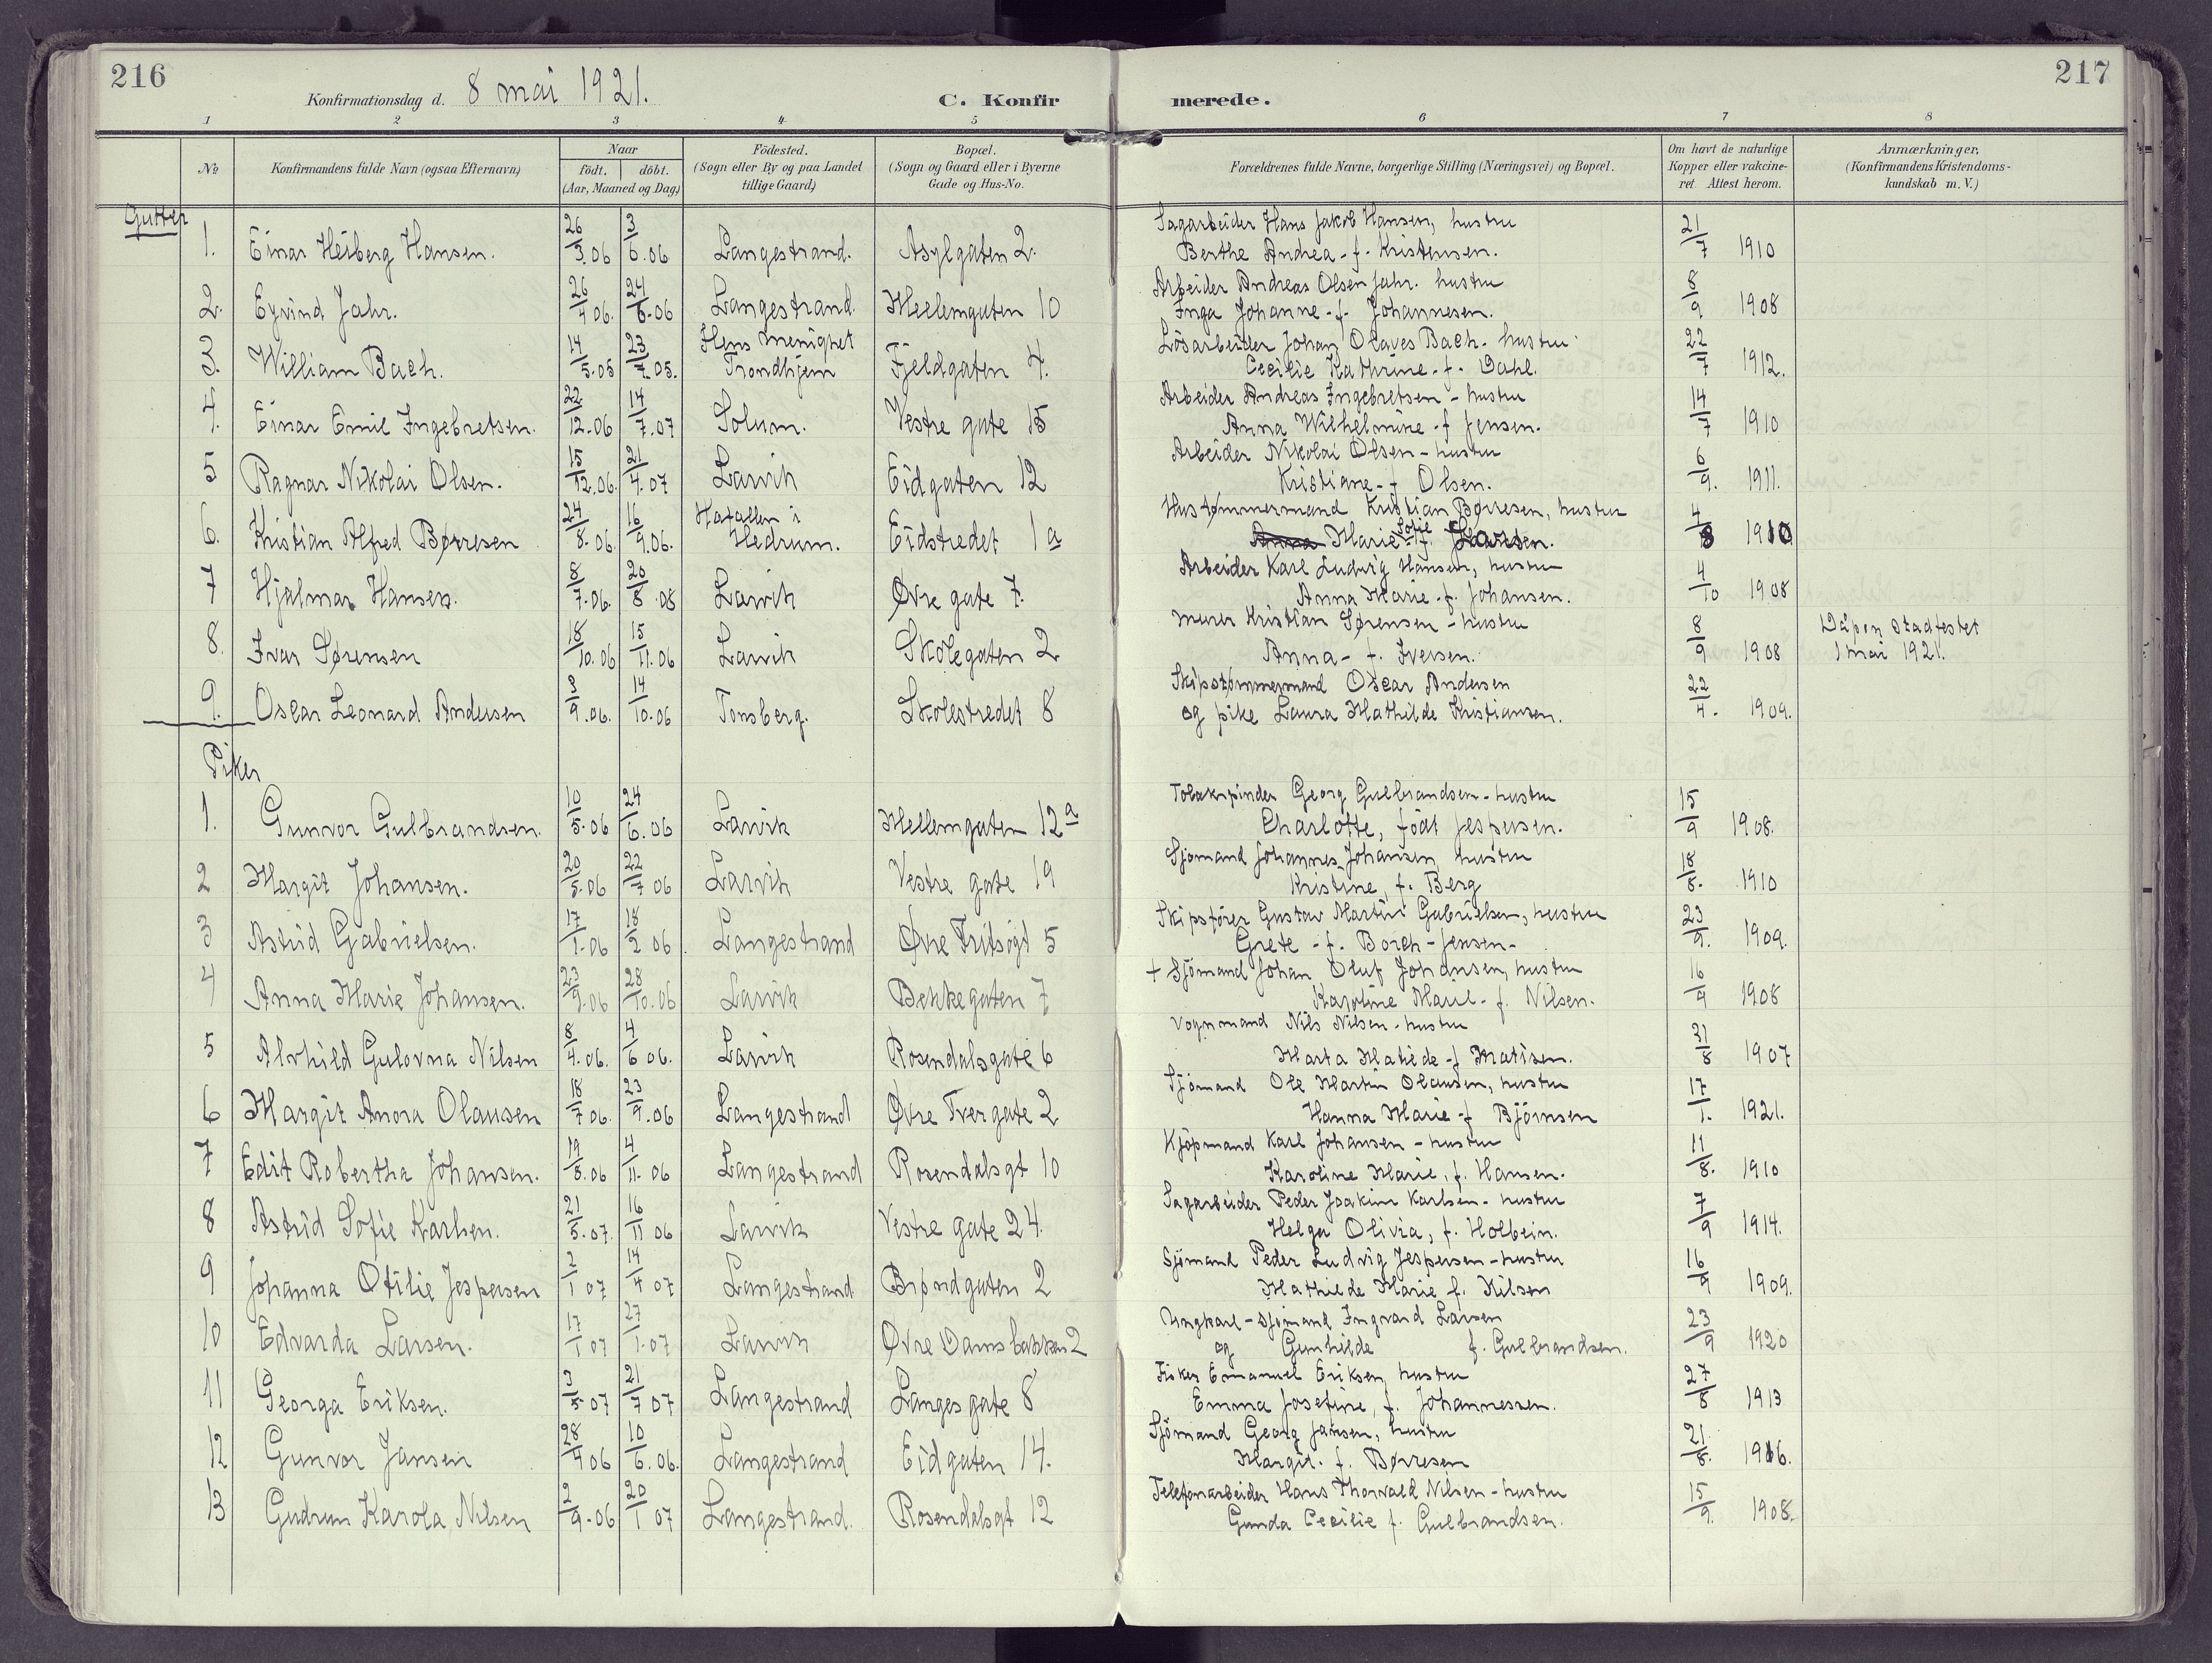 216
Konfirmationsdag d. 8 mai 1921.
C. Konfirmerede.
217
1 2 3 4 5 6 7 8
No.
Konfirmandens fulde Navn (ogsaa Efternavn)
Naar
født. døbt.
(Aar, Maaned og Dag)
Fødested.
(Sogn eller By og paa Landet
tillige Gaard)
Bopæl.
(Sogn og Gaard eller i Byerne
Gade og Hus-No.
Forældrenes fulde Navne, borgerlige Stilling (Næringsvei) og Bopæl.
Om havt de naturlige
Kopper eller vakcine-
ret. Attest herom.
Anmærkninger,
(Konfirmandens Kristendoms-
kundskab m. V.)
Gutter
1. Einar Heiberg Hansen. 26/5.06 3/6.06 Langestrand. Asylgaten 2. Sagarbeider Hans Jakob Hansen, hustru
Berthe Andrea - f. Kristensen. 21/7 1910
2. Eyvind Jahr. 26/4 06. 24/6.06 Langestrand. Mellemgaten 10 Arbeider Andreas Olsen Jahr. hustru
Inga Johanne - f. Johannesen. 8/9 1908
3. William Bach. 14/5.05 23/7.05. menighet
Trondhjem Fjeldgaten 4. Løsarbeider Johan Olaves Bach. hustru
Cecilie Kathrine - f. Dahl. 22/7 1912.
4. Einar Emil Ingebretsen. 22/12.06 14/7.07 Solum. Vestre gate 15 Arbeider Andreas Ingebretsen - hustru
Anna Wilhelmine - f Jensen. 14/7 1910
5 Ragnar Nikolai Olsen. 15/12.06. 21/4.07 Larvik Eidgaten 12 Arbeider Nikolai Olsen - hustru
Kristiane - f Olsen. 6/9. 1911.
6. Kristian Alfred Børresen 24/8.06. 16/9.06. Hafallen i
Hedrum. Eidstredet 1 a Hustømmermand Kristian Børresen, hustru
Anna Marie Sofie f. Larsen. 4/8 1910
7 Hjalmar Hansen. 8/7.06. 20/8.08 Larvik Øvre gate 7. Arbeider Karl Ludvig Hansen, hustru
Anna Marie - f. Johansen. 4/10 1908
8. Ivar Sørensen 18/10.06 15/11.06 Larvik Skolegaten 2 Murer Kristian Sørensen - hustru
Anna - f. Iversen. 8/9 1908 Dåpen stadfestet
1 mai 1921.
9. Oscar Leonard Andersen 9.06. 14/10.06 Tønsberg. Skolestredet 8 Skipstømmermand Oscar Andersen
og pike Laura Mathilde Kristiansen. 22/4. 1909.
Piker
1. Gunvor Gulbrandsen. 10/5.06 24/6.06 Larvik Mellemgaten 12 a Tobakspinder Georg Gulbrandsen - hustru
Charlotte, født Jespersen. 15/9 1908.
2 Margit Johansen. 20/5.06 22/7 06 Larvik Vestre gate 19 Sjømand Johannes Johansen, hustru
Kristine, f. Berg 18/8. 1910
3 Astrid Gabrielsen. 17/1.06 18/2 06. Langestrand Øvre Fritsøgt 5 Skipsfører Gustav Martin Gabrielsen, hustru
Grete - f. Borch - Jensen - 23/9. 1909.
4 Anna Marie Johansen. 23/9.06 28/10.06 Larvik Bekkegaten 7 + Sjømand Johan Oluf Johansen, hustru
Karoline Marie - f. Nilsen. 16/9 1908
5 Alvhild Gulovna Nilsen 8/4.06. 4/6 06. Larvik Rosendalsgate 6 Vognmand Nils Nilsen - hustru
Marta Matilde - f Matisen. 31/8 1907
6 Margit Anora Olausen 18/7 06. 23/9.06 Langestrand Øvre Tvergate 2 Sjømand Ole Martin Olausen, hustru
Hanna Marie - f Bjørnsen 17/1. 1921.
7 Edit Robertha Johansen. 19/8.06 4/11.06 Langestrand Rosendalsgt 10 Kjøpmand Karl Johansen - hustru
Karoline Marie, f. Hansen. 11/8. 1910
8 Astrid Sofie Karlsen. 21/5.07. 16/11 06 Larvik Vestre gate 24. Sagarbeider Peder Joakim Karlsen - hustru
Helga Olivia, f. Holbein. 7/9 1914.
9 Johanna Otilie Jespersen 2/1 07 14/4 07 Langestrand Brøndgaten 2 Sjømand Peder Ludvig Jespersen - hustru
Mathilde Marie f. Nilsen 16/9 1909.
10 Edvarda Larsen. 17/1 07 27/1.07 Larvik Øvre Damsbakken 2 Ungkarl - sjømand Ingvard Larsen
og Gunhilde f. Gulbrandsen. 23/9 1920
11 Georga Eriksen. 3/5.07 21/7 07 Langestrand Langesgate 8 Fisker Emanuel Eriksen, hustru
Emma Josefine, f. Johannessen. 27/8 1913
12 Gunvor Jansen 28/4 06 10/6.06. Langestrand Eidgaten 14. Sjømand Georg Jansen, hustru
Margit. f. Børresen 21/8. 1916.
13 Gudrun Karola Nilsen 2/9.06 20/1 07 Langestrand. Rosendalsgt 12 Telefonarbeider Hans Thorvald Nilsen - hustru
Gunda Cecilie f. Gulbrandsen. 15/9. 1908.